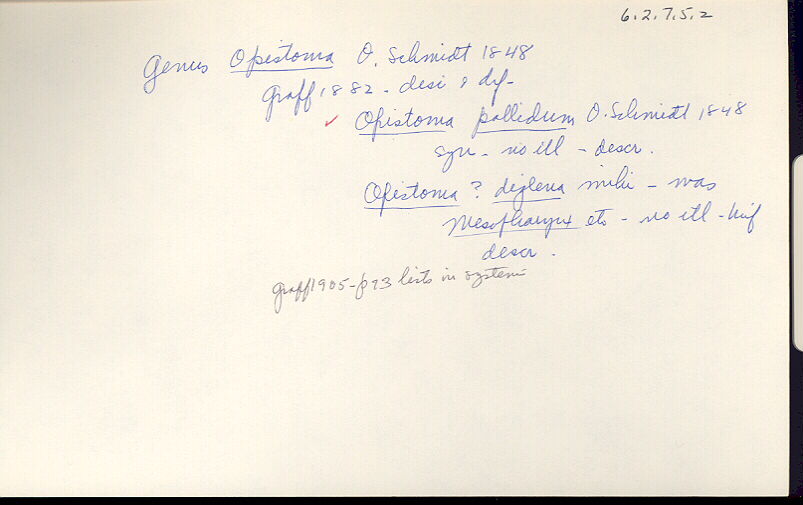 6.2.7.5.2
Genus Opistoma O. Schmidt 1848
Graff 1882 - desi & dif-
✓ Opistoma pallidum O. Schmidt 1848
syn - no ill - descr.
Opistoma ? diglena mihi - was
Mesopharynx etc - no ill - brief
descr.
Graff 1905 - p 93 lists in system